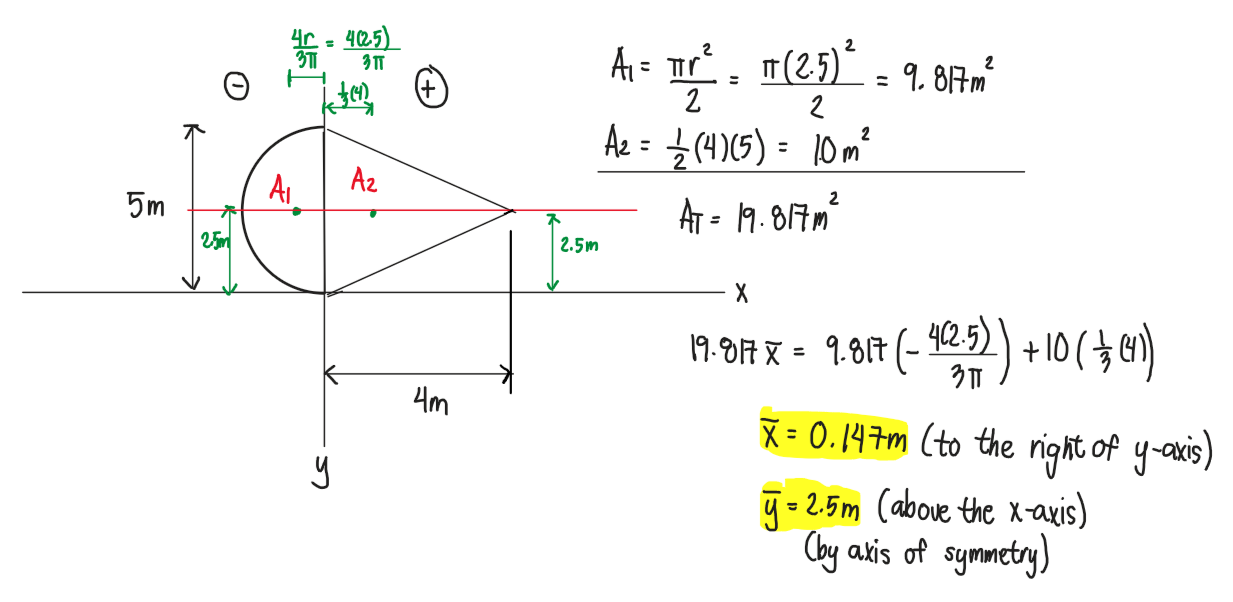 4r/3π = 4(2.5)/3π
⊖
⊕
1/3(4)
5m
A1
A2
2.5m
2.5m
x
4m
y
A1 = πr²/2 = π(2.5)²/2 = 9.817m²
A2 = 1/2(4)(5) = 10m²
AT = 19.817m²
19.817x̄ = 9.817(-4(2.5)/3π) + 10(1/3(4))
x̄ = 0.147m (to the right of y-axis)
ȳ = 2.5m (above the x-axis)
(by axis of symmetry)